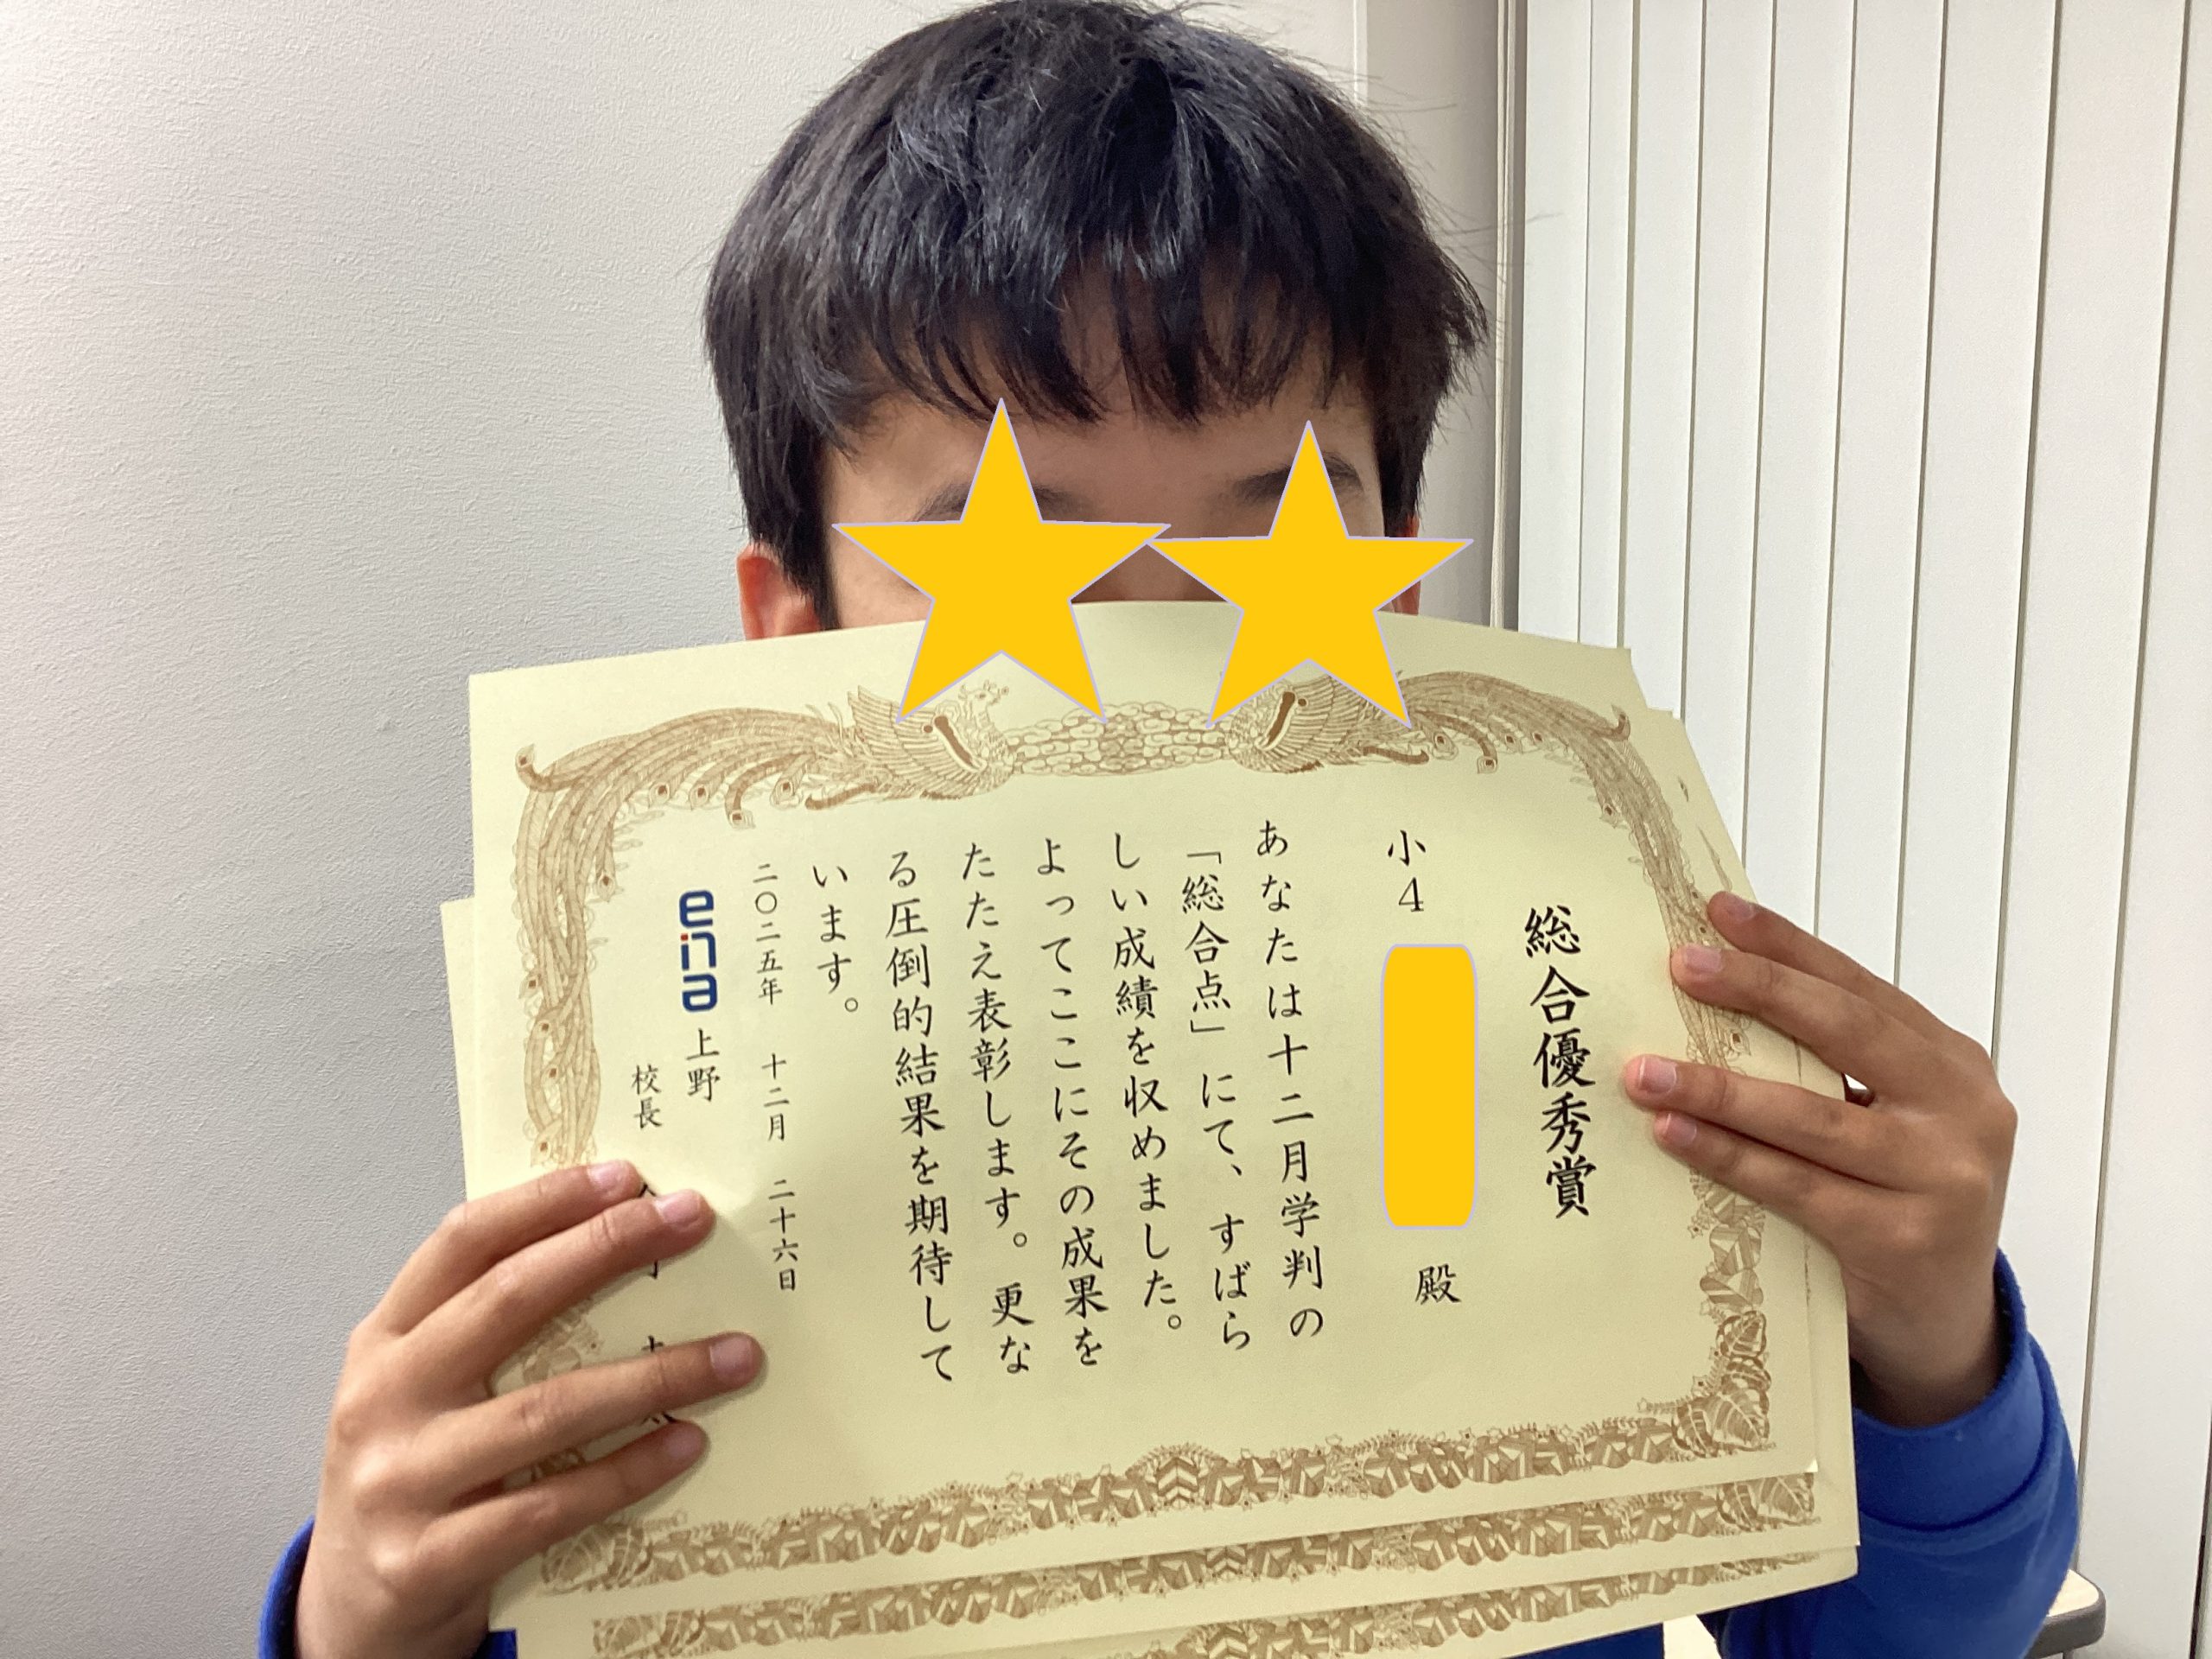 総合優秀賞
小4 殿
あなたは十二月学判の
「総合点」にて、すばら
しい成績を収めました。
よってここにその成果を
たたえ表彰します。更な
る圧倒的結果を期待して
います。
二〇二五年 十二月 二十六日
ena 上野
校長